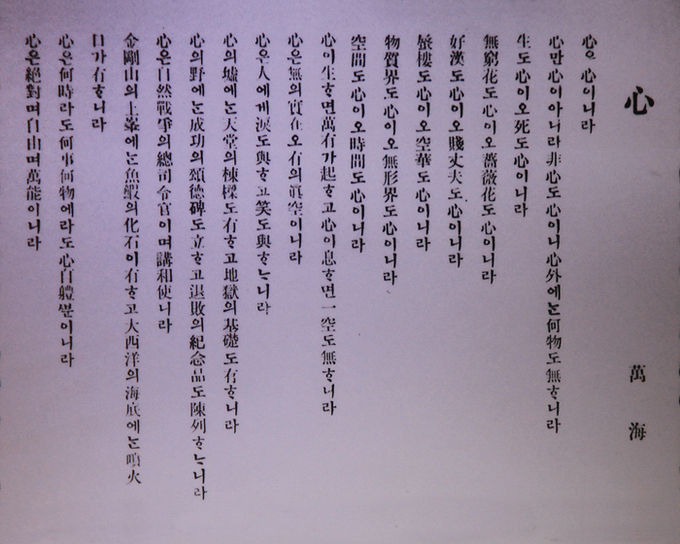 心
萬 海
心은心이니라
心만心이아니라非心도心이니心外에ᄂᆞᆫ何物도無ᄒᆞ니라
生도心이오死도心이니라
無窮花도心이오薔薇花도心이니라
好漢도心이오賤丈夫도心이니라
蜃樓도心이오空華도心이니라
物質界도心이오無形界도心이니라
空間도心이오時間도心이니라
心이生ᄒᆞ면萬有가起ᄒᆞ고心이息ᄒᆞ면一空도無ᄒᆞ니라
心은無의實在오有의眞空이니라
心은人에게淚도與ᄒᆞ고笑도與ᄒᆞᄂᆞ니라
心의墟에ᄂᆞᆫ天堂의棟樑도有ᄒᆞ고地獄의基礎도有ᄒᆞ니라
心의野에ᄂᆞᆫ成功의頌德碑도立ᄒᆞ고退敗의紀念品도陳列ᄒᆞᄂᆞ니라
心은自然戰爭의總司令官이며講和使니라
金剛山의上峯에ᄂᆞᆫ魚鰕의化石이有ᄒᆞ고大西洋의海底에ᄂᆞᆫ噴火
口가有ᄒᆞ니라
心은何時라도何事何物에라도心自體ᄲᅮᆫ이니라
心은絕對며自由며萬能이니라